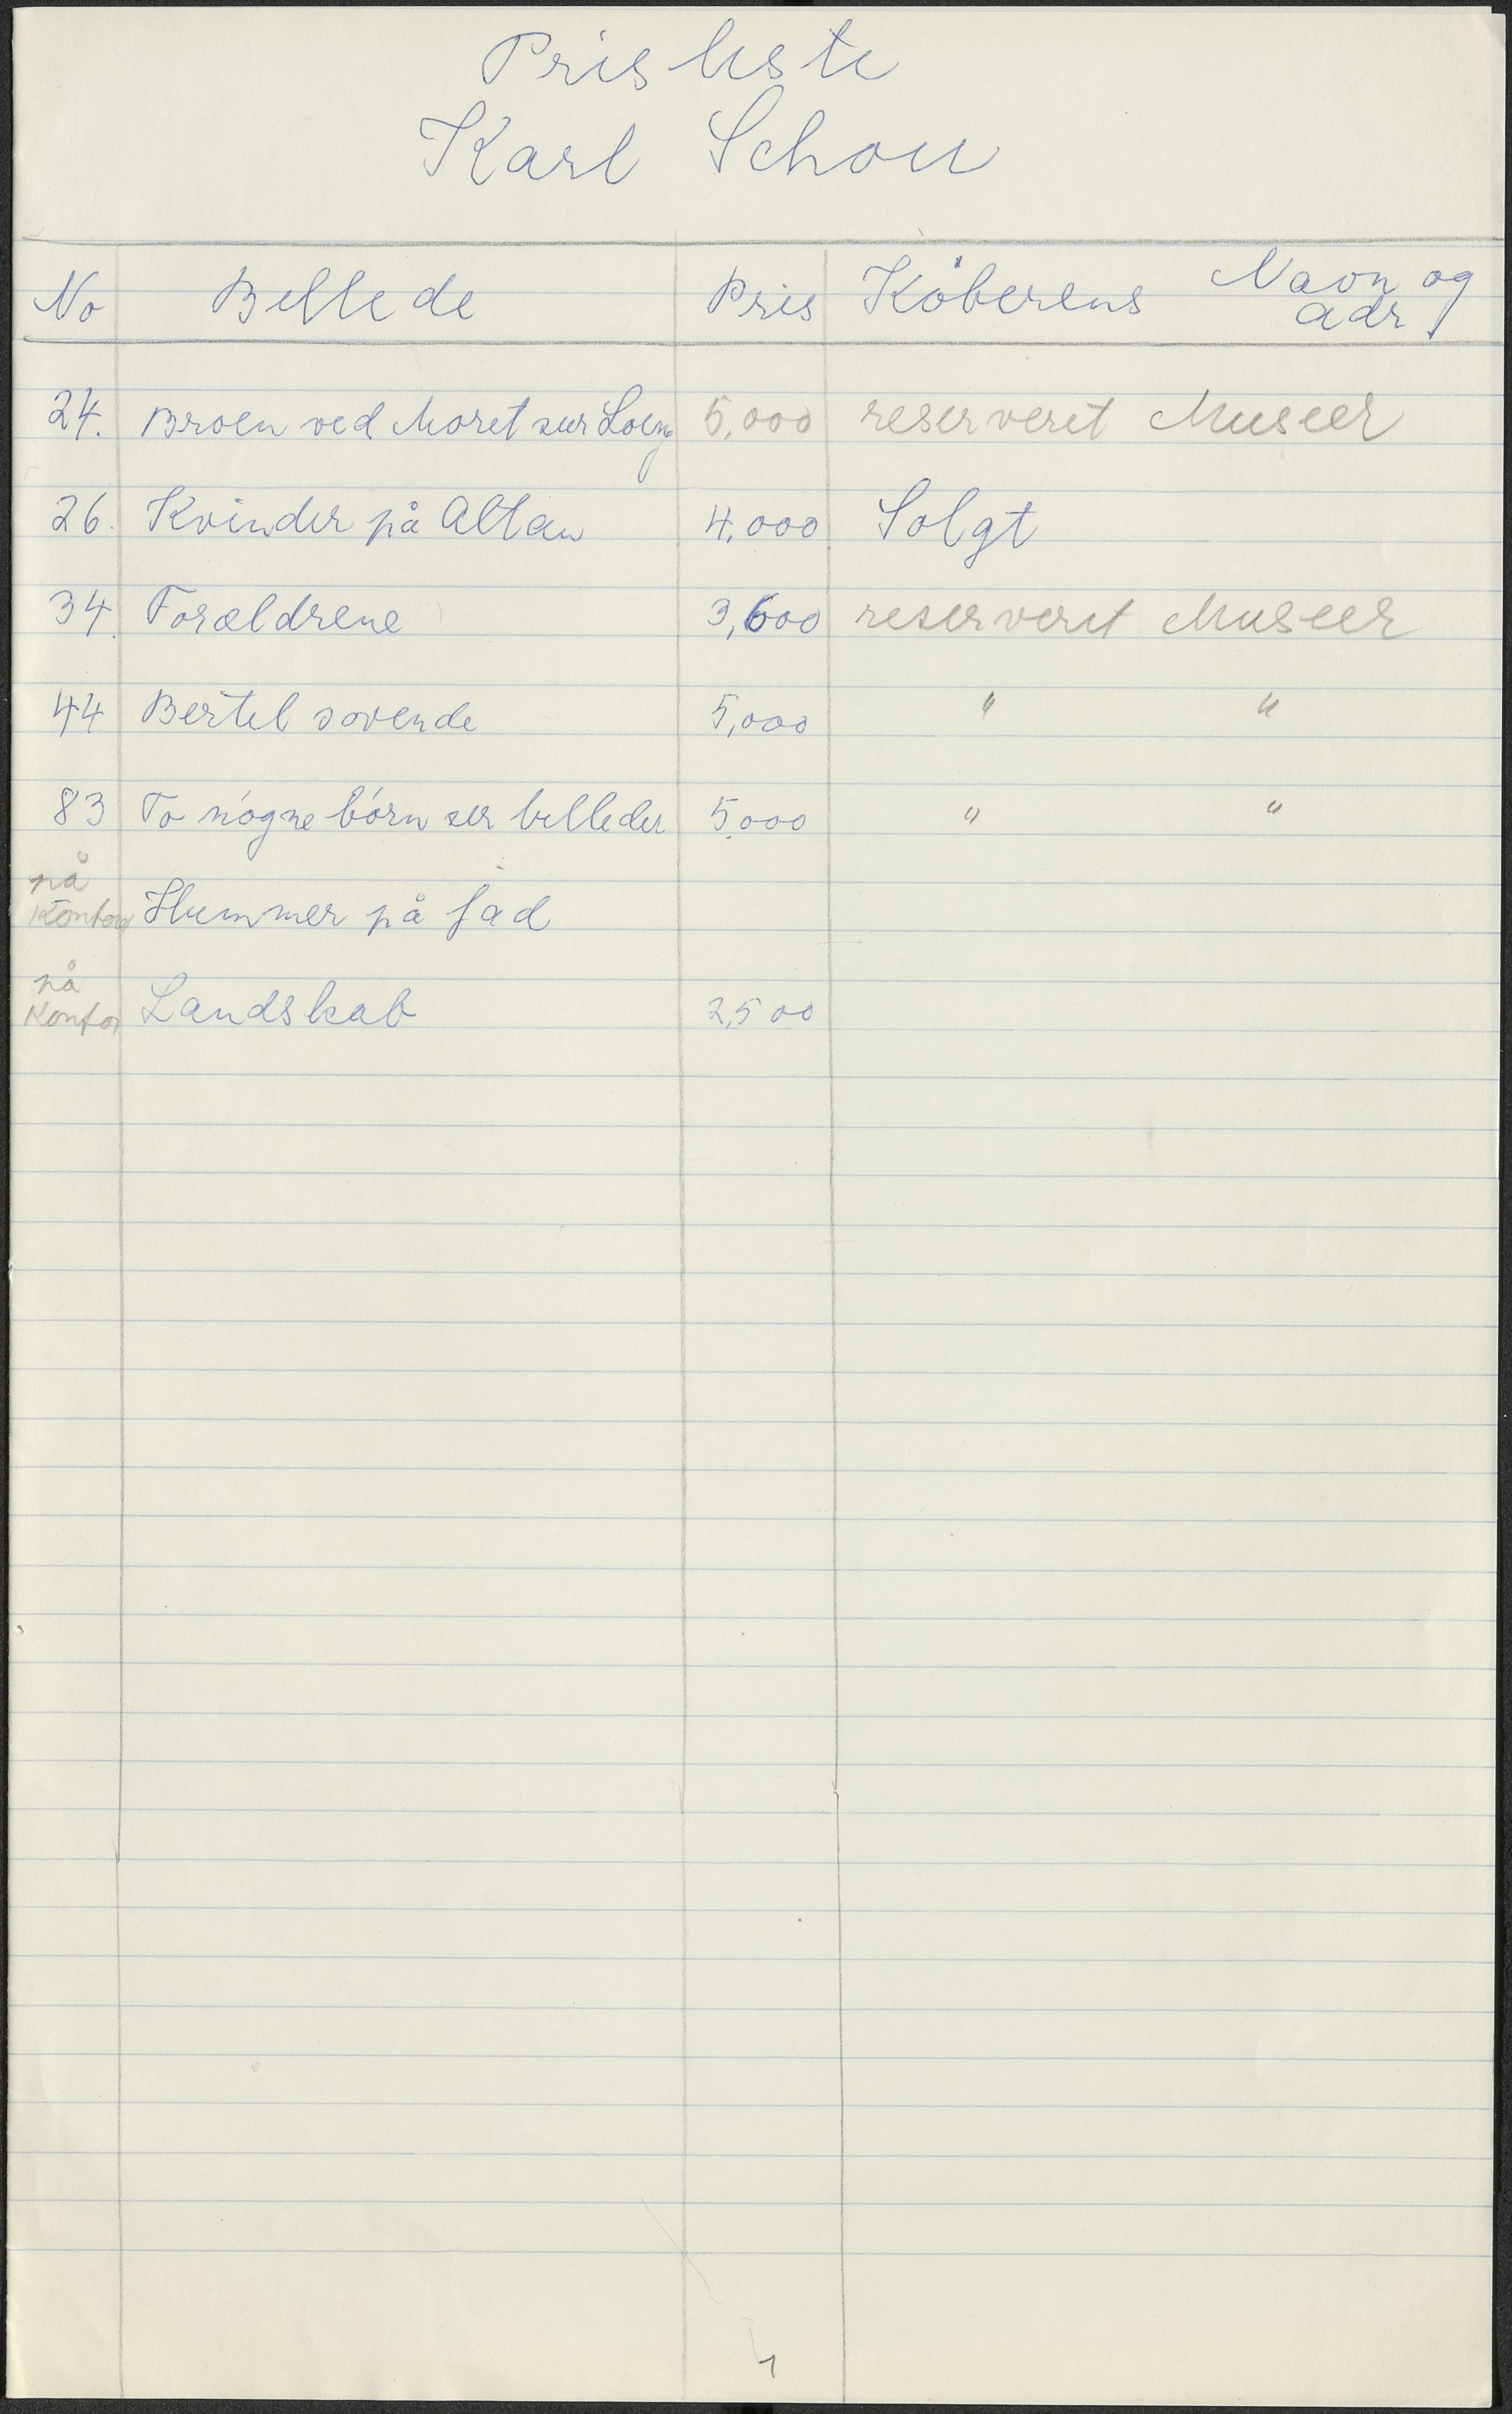 Prisliste
Karl Schou
No Billede Pris Köberens Navn og adr.
24. Broen ved Moret sur Loing 5,000 reserveret Museer
26. Kvinder på Altan 4,000 Solgt
34. Forældrene 3,600 reserveret Museer
44 Bertel sovende 5,000 " "
83 To nógne börn ser billeder 5,000 " "
på
Kontor Hummer på fad
på
Kontor Landskab 2,500
1